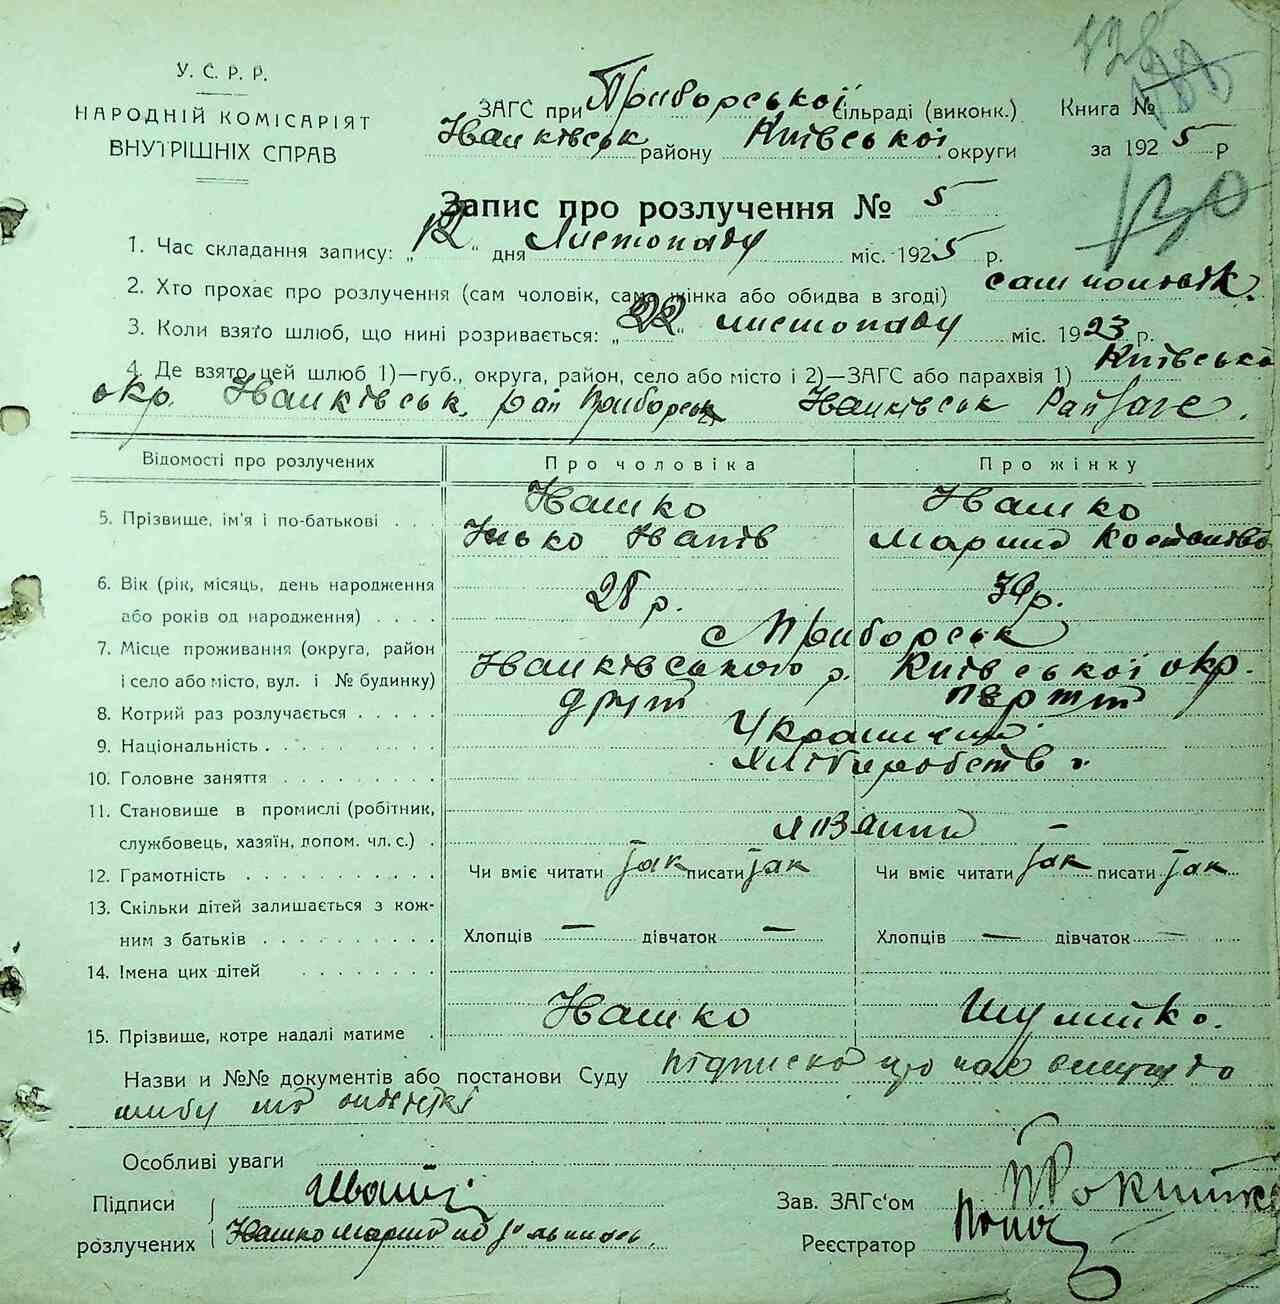 У. С. Р. Р.
НАРОДНІЙ КОМІСАРІЯТ
ВНУТРІШНІХ СПРАВ
ЗАГС при Приборської сільраді (виконк.) Книга №
Іванківськ району Київської округи за 1925 р
130
Запис про розлучення № 5
1. Час складання запису: „12" дня Листопаду міс. 1925 р.
2. Хто прохає про розлучення (сам чоловік, сама жінка або обидва в згоді) сам чоловік.
3. Коли взято шлюб, що нині розривається: „22" листопаду міс. 1923 р.
4. Де взято цей шлюб 1)—губ., округа, район, село або місто і 2)—ЗАГС або парахвія 1) Київська
окр. Іванківськ. рай Приборськ Іванківськ Райзагс.
Відомості про розлучених Про чоловіка Про жінку
5. Прізвище, ім'я і по-батькові Івашко Івашко
Ісько Іванів Марина
6. Вік (рік, місяць, день народження
або років од народження) 28 р. 30 р.
7. Місце проживання (округа, район с Приборськ
і село або місто, вул. і № будинку) Іванківського р. Київської окр.
8. Котрий раз розлучається друг перш
9. Національність
10. Головне заняття Хліборобств
11. Становище в промислі (робітник,
службовець, хазяїн, допом. чл. с.) —
12. Грамотність Чи вміє читати так писати так Чи вміє читати так писати так
13. Скільки дітей залишається з кож-
ним з батьків Хлопців — дівчаток — Хлопців — дівчаток —
14. Імена цих дітей
15. Прізвище, котре надалі матиме Івашко
Назви и №№ документів або постанови Суду підписка що
Особливі уваги
Підписи
розлучених Івашко Марина
Зав. ЗАГс'ом
Реєстратор